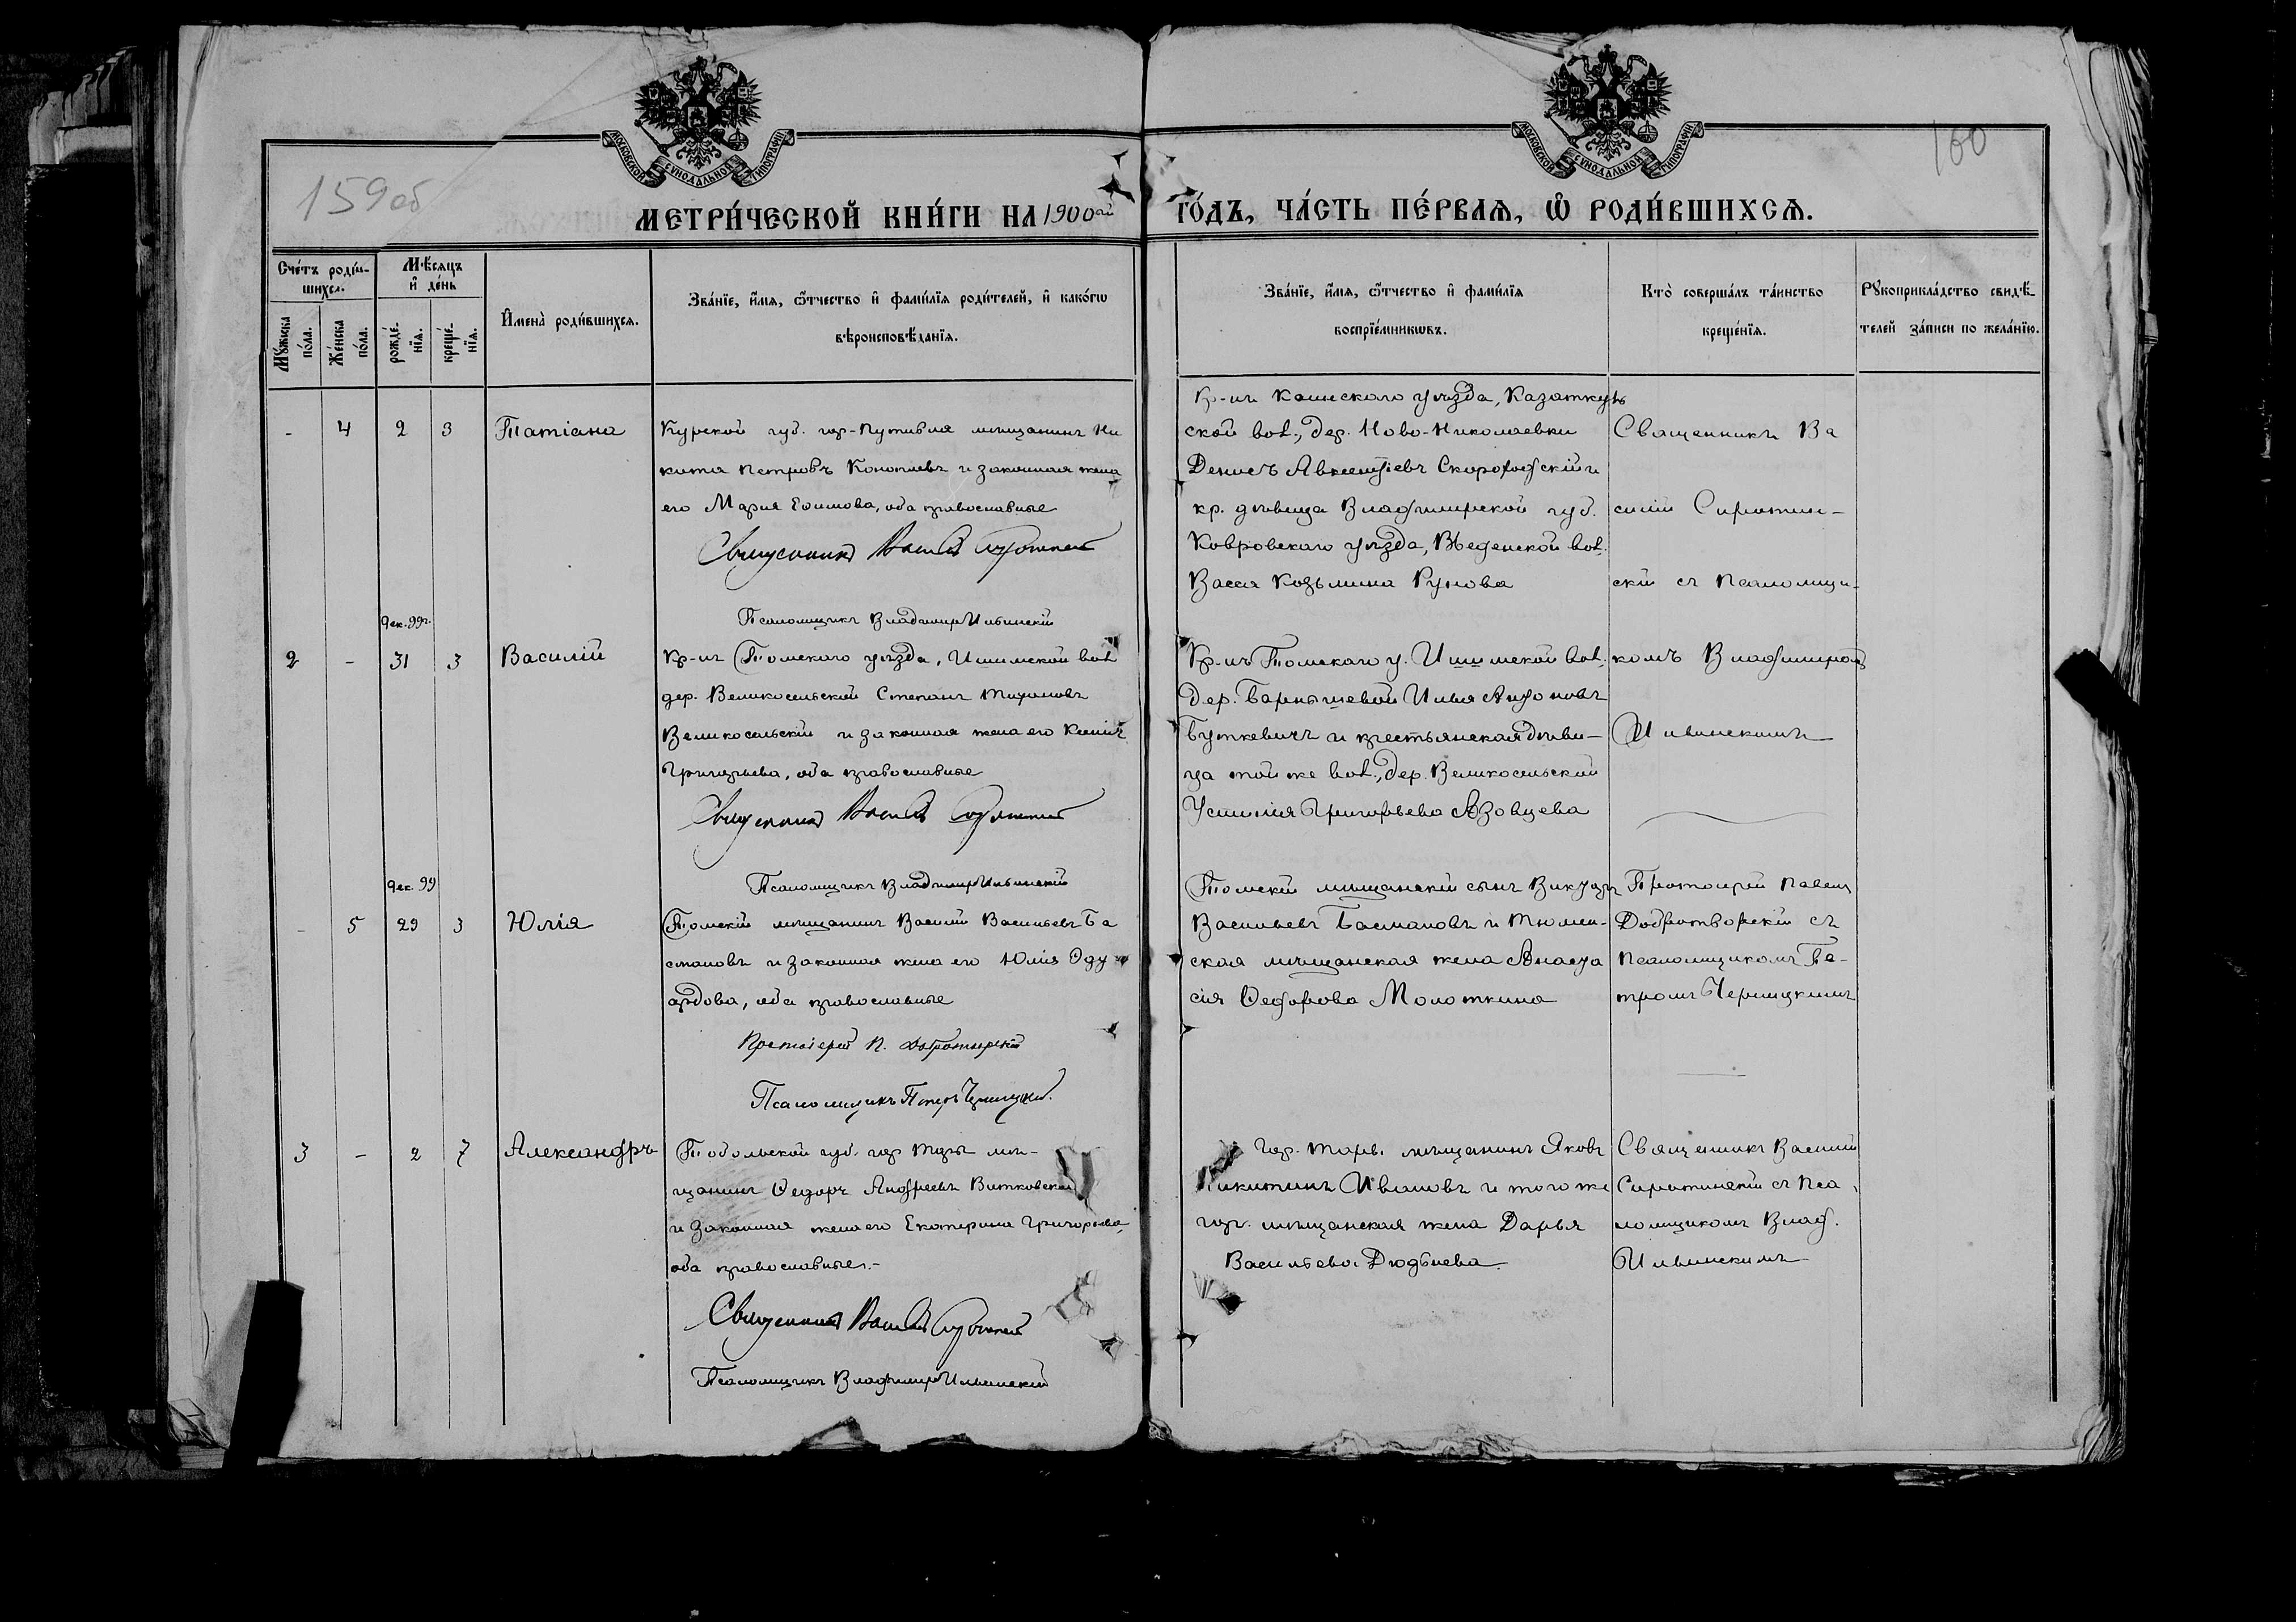 159об
160
МОСКОВСКОЙ СУНОДАЛЬНОЙ ТИПОГРАФІИ
МОСКОВСКОЙ СУНОДАЛЬНОЙ ТИПОГРАФІИ
МЕТРИ́ЧЕСКОЙ КНИ́ГИ НА 1900ый
ГО́ДЪ, ЧА́СТЬ ПЕ́РВАѦ, Ѽ РОДИ́ВШИХСѦ.
Сче́тъ роди́в-
шихсѧ.
Мꙋ́жеска по́ла.
Же́нска по́ла.
Мѣ́сѧцъ и҆ де́нь
рожде́-нїѧ.
креще́-нїѧ.
И҆мена̀ роди́вшихсѧ.
Зва́нїе, и҆́мѧ, ѻ҆́тчество и҆ фами́лїѧ роди́телей, и҆ како́гѡ
вѣроисповѣ́данїѧ.
Зва́нїе, и҆́мѧ, ѻ҆́тчество и҆ фами́лїѧ
воспрїе́мникѡвъ.
Кто̀ соверша́лъ та́инство
креще́нїѧ.
Рꙋкоприкла́дство свидѣ́-
телей за́писи по жела́нїю.
- 4 2 3 Татіана
Курской губ. гор-Путивля мѣщанинъ Ни
кита Петровъ и законная жена
его Мария Ефимова, оба православные
Священникъ Василій Сиротинскій
Псаломщикъ Владимиръ Ильинскій
Кр-нъ Каинскаго уѣзда, Казаткуль
ской вол., дер. Ново-Николаевки
Денисъ Авксентіевъ и
кр. дѣвица Владимирской губ.
Ковровскаго уѣзда, вол.
Васса Козьмина Рунова
Священникъ Ва
силій Сиротин-
скій съ Псаломщи-
комъ Владимиромъ
Ильинскимъ
Дек. 99г.
2 - 31 3 Василій
Кр-нъ Томскаго уѣзда, Ишимской вол
дер. Великосельской Степанъ Тихоновъ
Великосельскій и законная жена его Ксенія
Григорьева, оба православные
Священникъ Василій Сиротинскій
Псаломщикъ Владимиръ Ильинскій
Кр-нъ Томскаго у. Ишимской вол.
дер. Барнышевой Илья
Буткевичъ и крестьянская дѣви-
ца той же вол., дер. Великосельской
Устинія Григорьева Язовцева
Дек. 99
- 5 29 3 Юлія
Томскій мѣщанинъ Василій Васильевъ Ба
смановъ и законная жена его Юлія Эду
ардова, оба православные
Протоіерей П. Добротворскій
Псаломщикъ Петръ
Томскій мѣщанскій сынъ
Васильевъ Басмановъ и Тюмен-
ская мѣщанская жена Анаста
сія Ѳедорова Молоткина
Протоіерей Павелъ
Добротворскій съ
Псаломщикомъ Пе-
тромъ
3 - 2 7 Александръ
Тобольской губ. гор Тары мѣ-
щанинъ Ѳедоръ Андреевъ Витковскій
и законная жена его Екатерина Григорьева,
оба православные.-
Священникъ Василій Сиротинскій
Псаломщикъ Владимиръ Ильинскій
Гор. Тары мѣщанинъ Яковъ
Никитинъ Ивановъ и того же
гор. мѣщанская жена Дарья
Васильева Дюдьнева.
Священникъ Василій
Сиротинскій съ Пса
ломщикомъ Влад.
Ильинскимъ